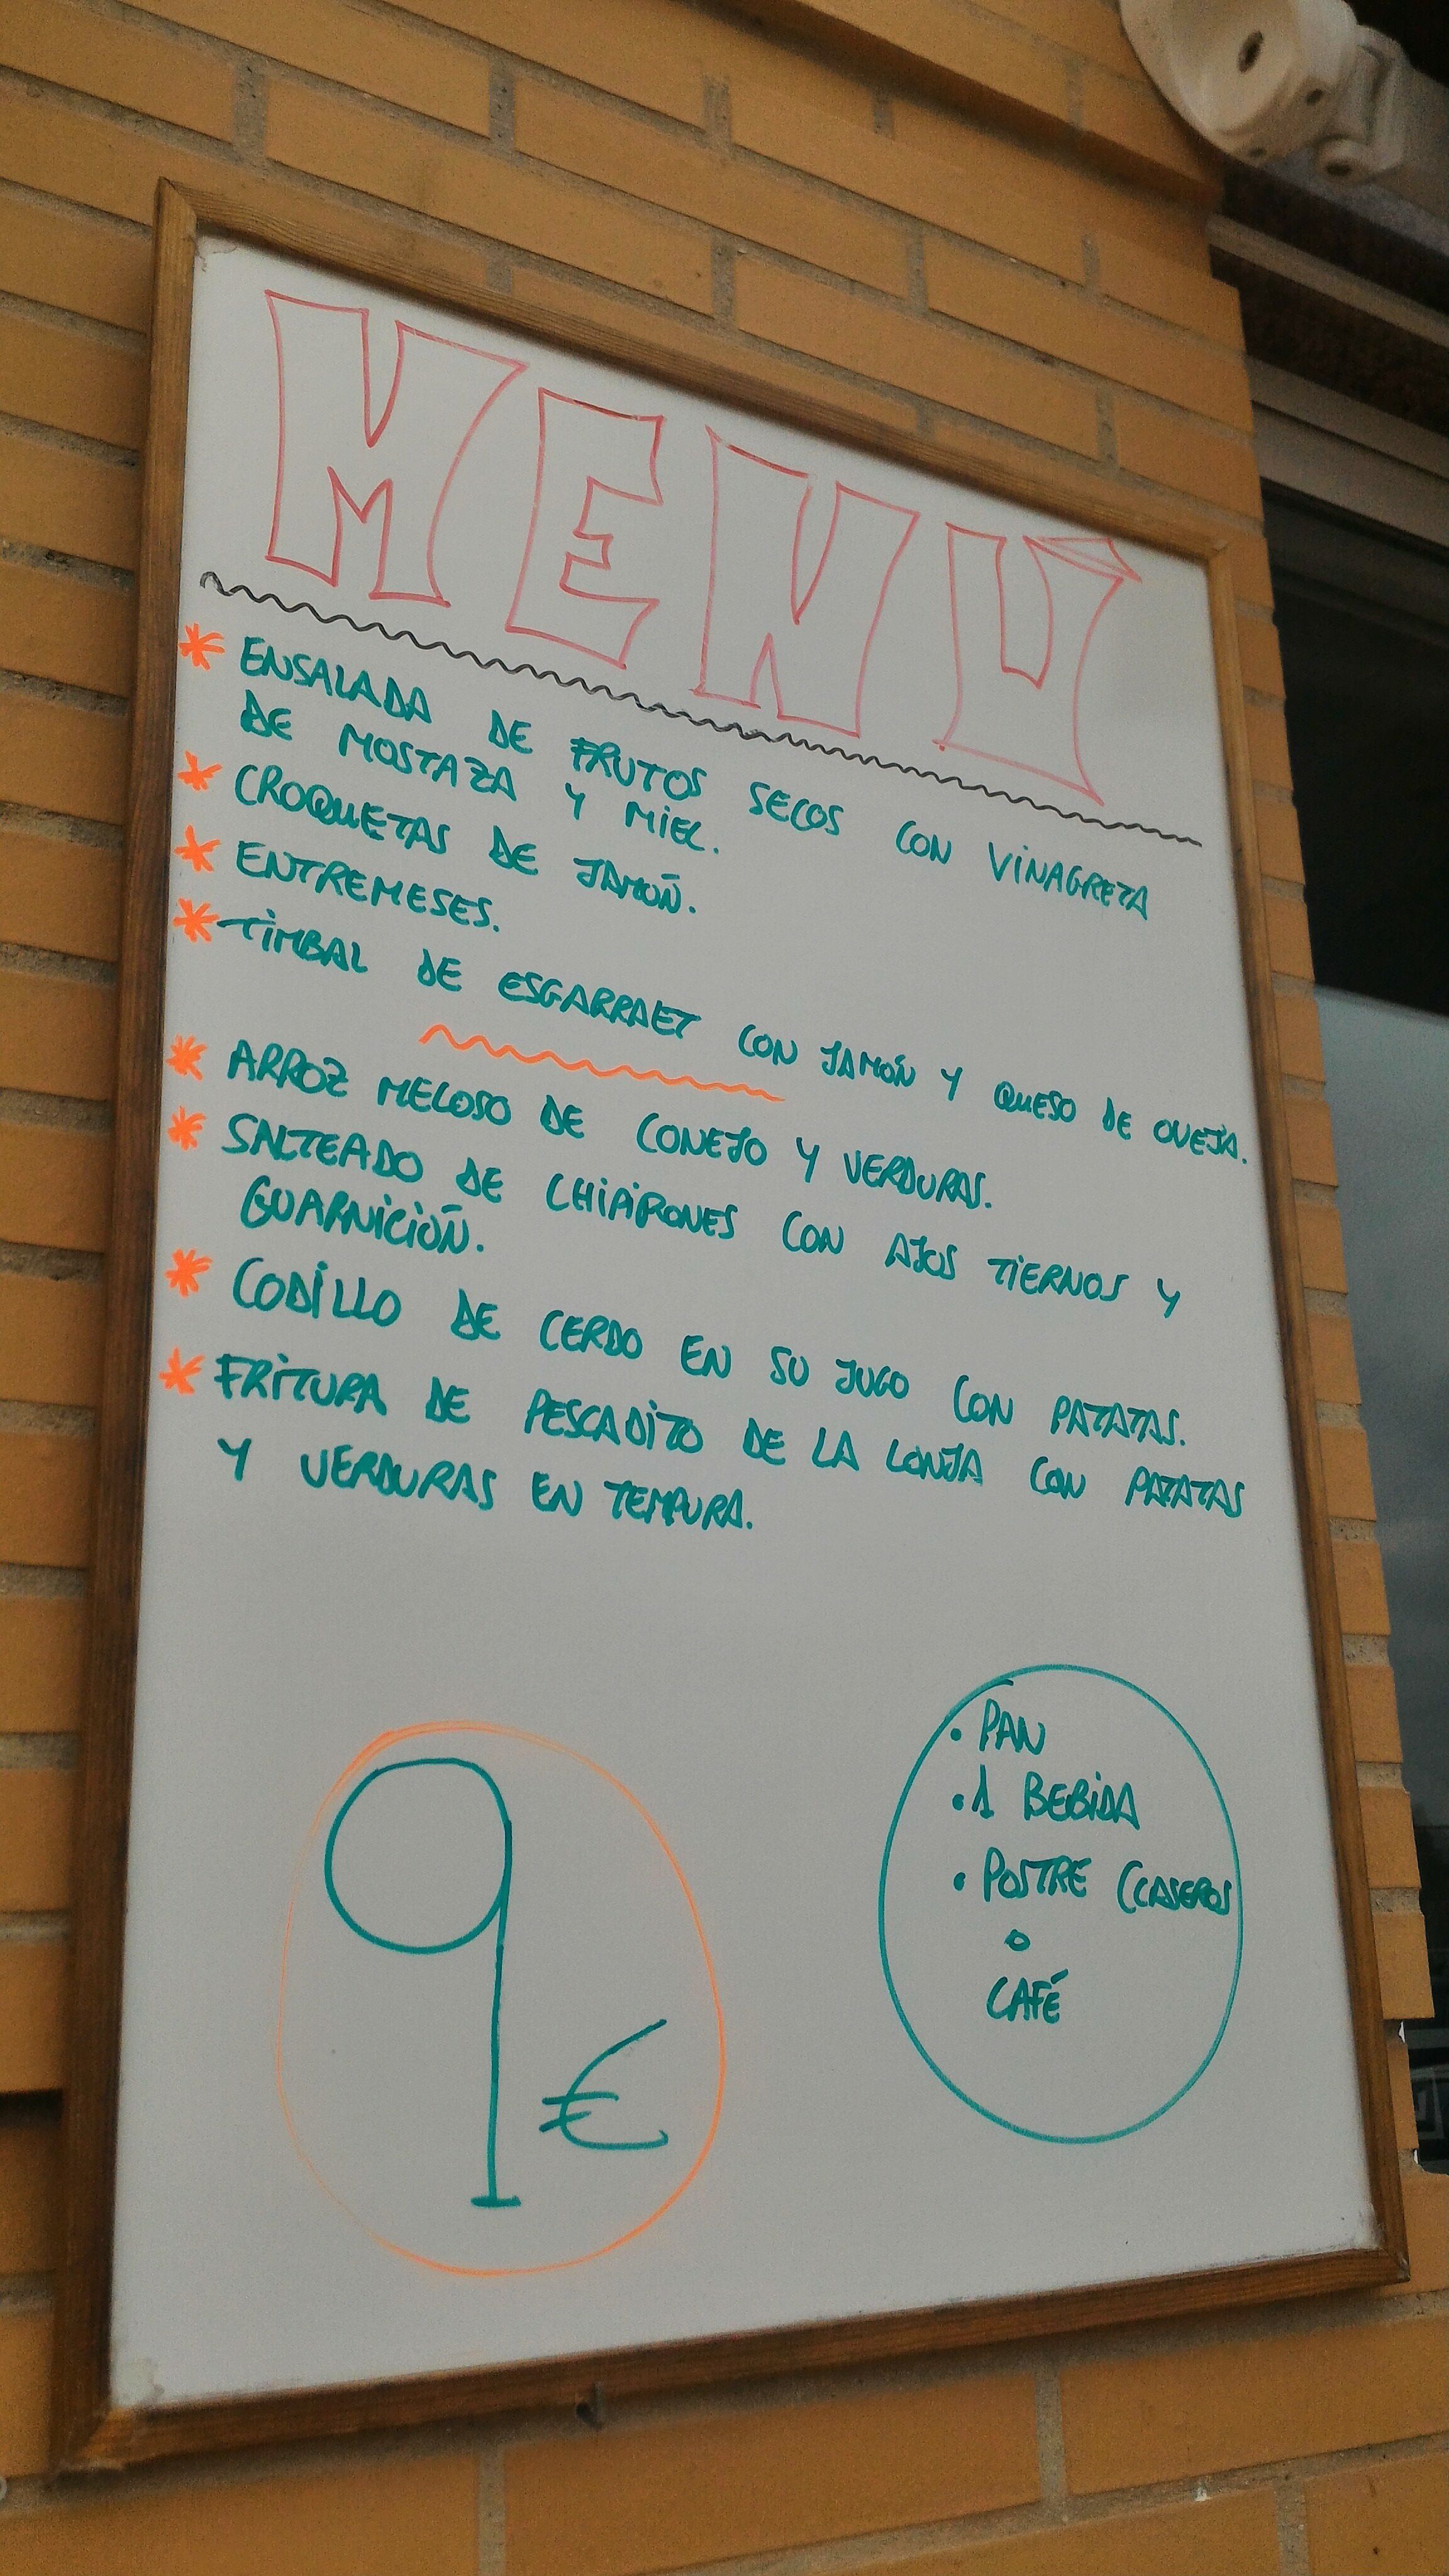 MENÚ
* ENSALADA DE FRUTOS SECOS CON VINAGRETA
DE MOSTAZA Y MIEL.
* CROQUETAS DE JAMÓN.
* ENTREMESES.
* TIMBAL DE ESGARRAET CON JAMÓN Y QUESO DE OVEJA.
* ARROZ MELOSO DE CONEJO Y VERDURAS.
* SALTEADO DE CHIPIRONES CON AJOS TIERNOS Y
GUARNICIÓN.
* CODILLO DE CERDO EN SU JUGO CON PATATAS.
* FRITURA DE PESCADITO DE LA LONJA CON PATATAS
Y VERDURAS EN TEMPURA.
9 €
• PAN
• 1 BEBIDA
• POSTRE (CASEROS
o
CAFÉ